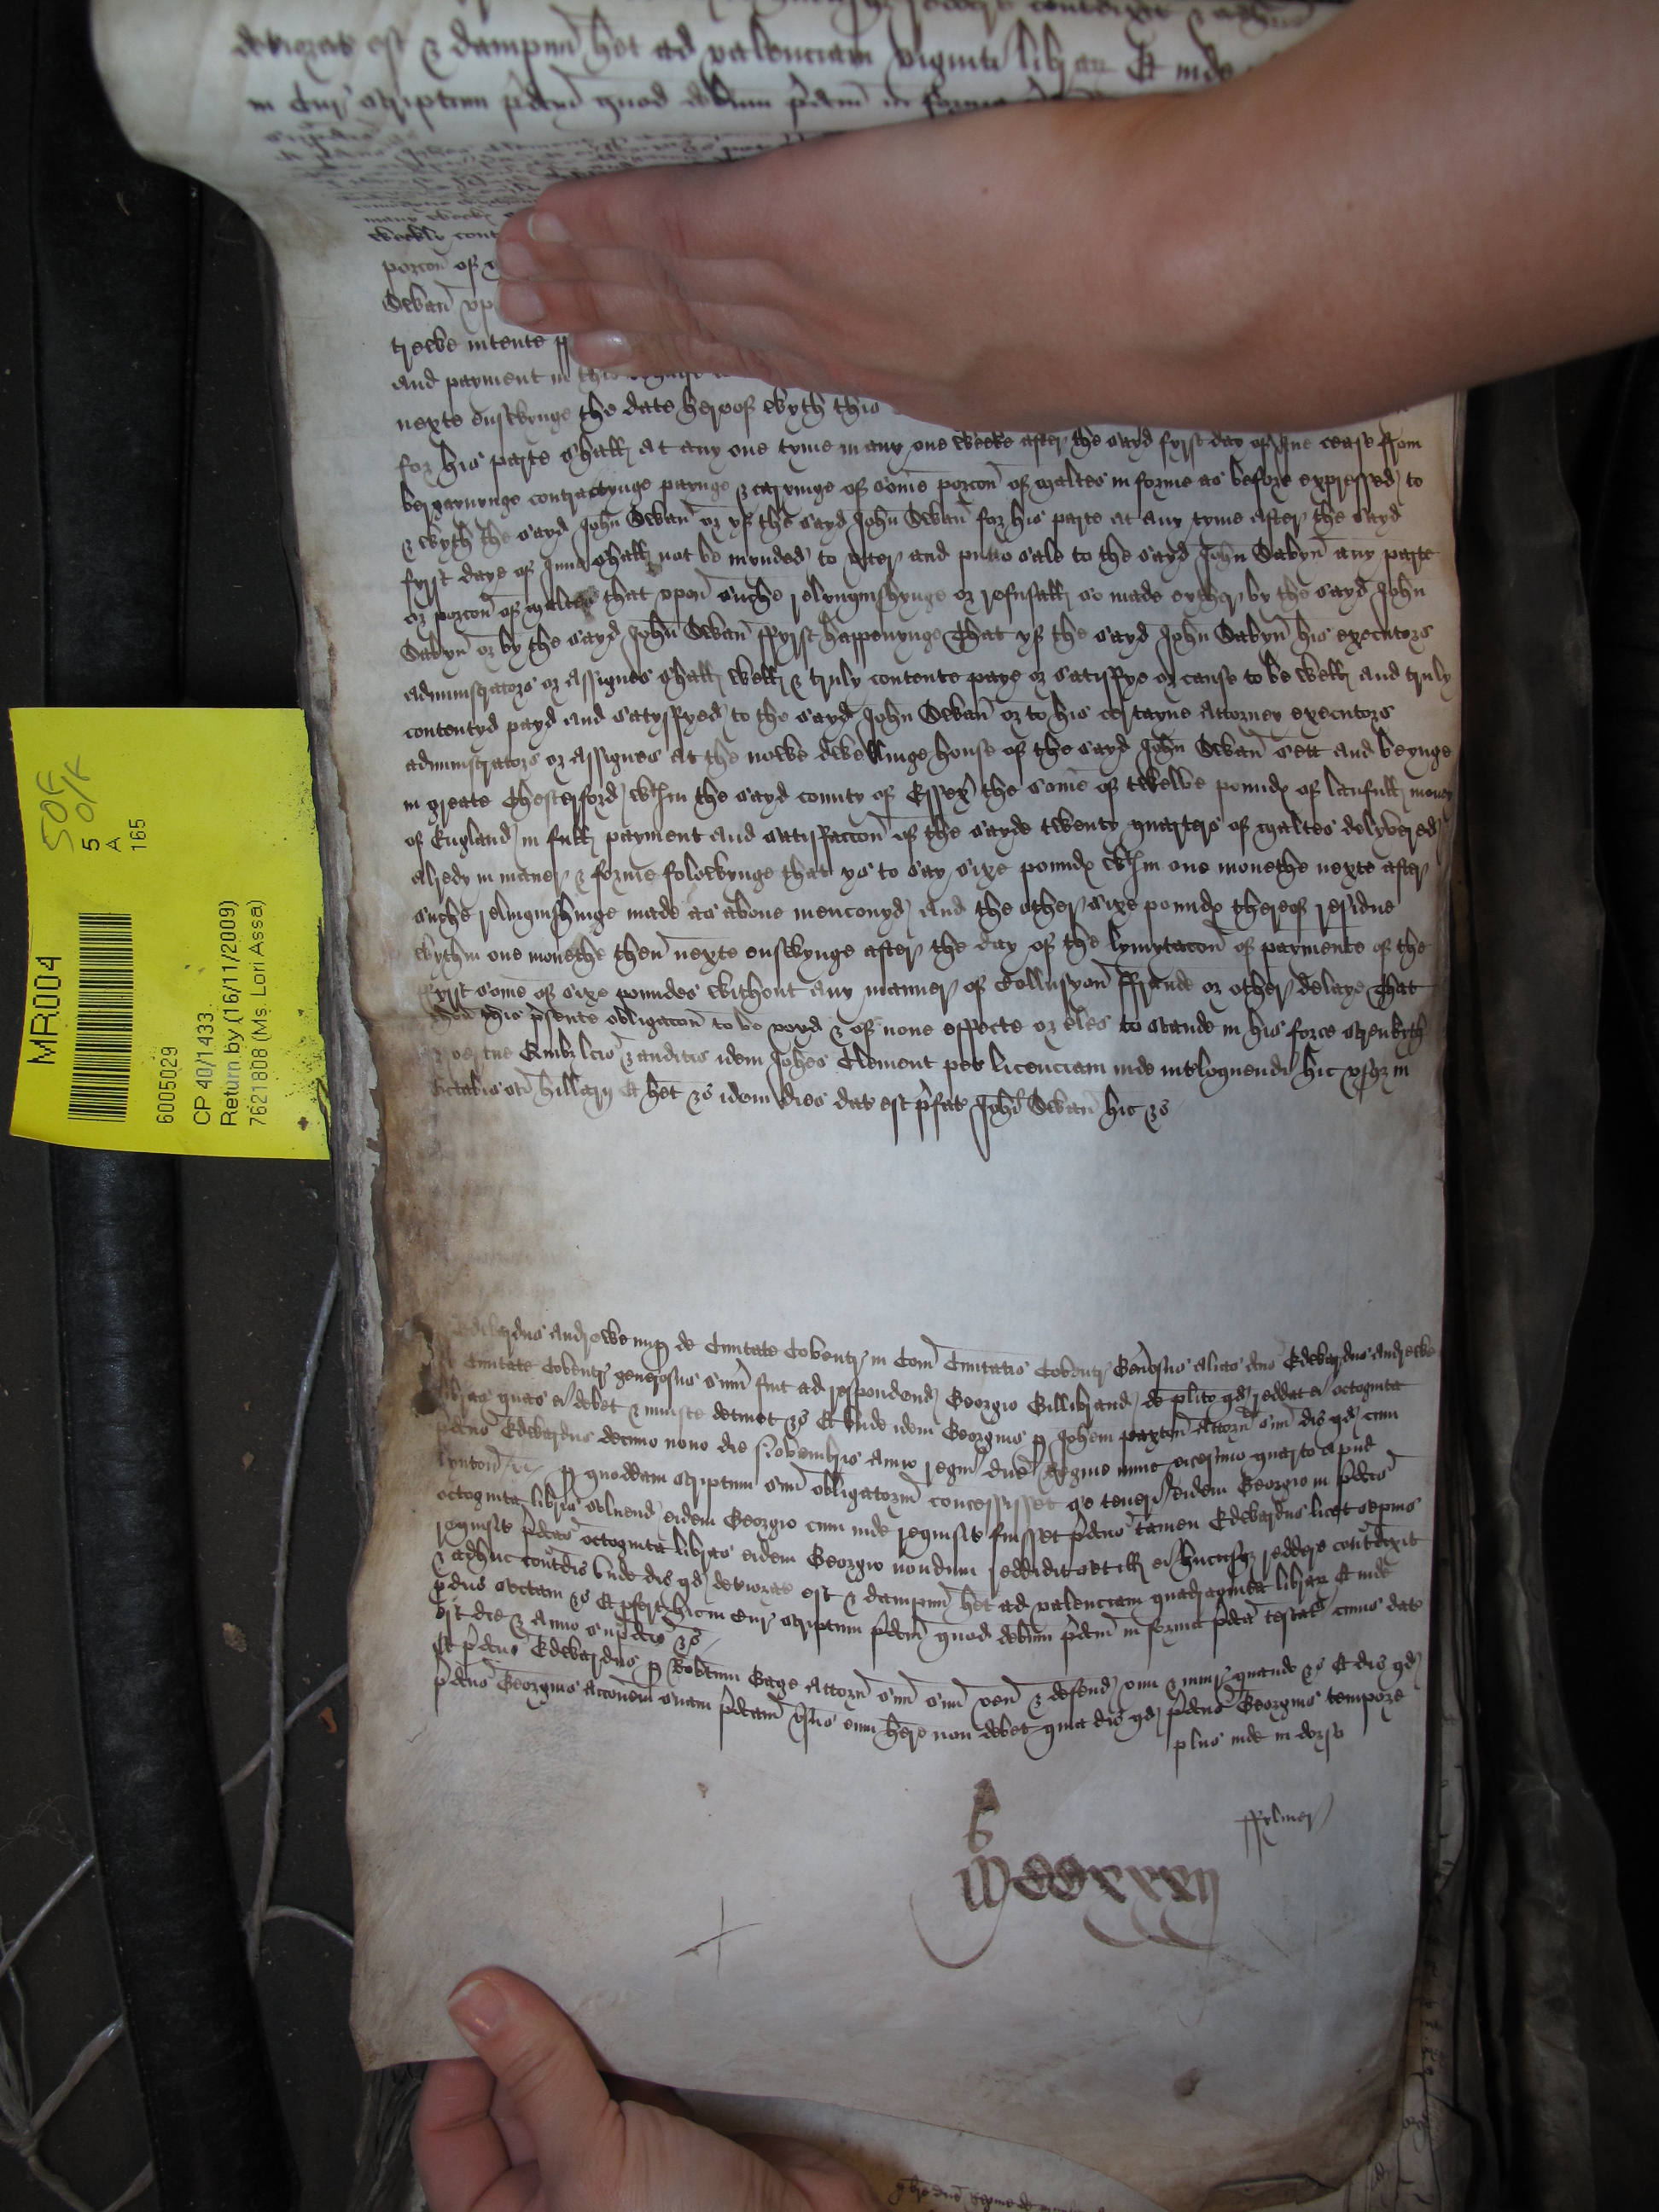 deviorat est & dampnm het ad valenciam viginti librar Et inde
in Cur scriptum pdcm quod debitum pdcm in forma
many weeks
weekly cont
porcon of
Swan vp
trewe intente
and payment in this
nexte ensewynge the date hereof wyth this
for his parte shall at any one tyme in any one weeke after the sayd fyrst day of June cease from
bergaynynge contractynge payinge & caryinge of some porcon of maltes in forme as before expressed to
& wyth the sayd John Swan or yf the sayd John Swan for his parte at any tyme after the sayd
fyrst daye of June shall not be mynded to vtter and putto sale to the sayd John Sabyn any parte
or porcon of maltes that vpon suche relynquishynge or refusall so made eyther by the sayd John
Sabyn or by the sayd John Swan ffyrst happenynge That yf the sayd John Sabyn his executors
administrators or assignes shall well & truly contente paye or satisffye or cause to be well and truly
contentyd payd and satysffyed to the sayd John Swan or to his certayne Attorney executors
administrators or assignes at the nowe dwellinge house of the sayd John Swan sett and beynge
in greate Chesterford wthin the sayd county of Essex the some of twelve poundes of laufull money
of England in full payment and satisfaccon of the sayde twenty quarters of maltes delyvered
alredy in maner & forme folowynge that ys to say sixe poundes wthin one monethe nexte after
suche relinquishinge made as above menconyd And the other sixe poundes thereof residue
wythin one monethe then nexte ensewynge after the day of the lymytacon of paymente of the
fyrst some of sixe poundes without any manner of Collusyon ffraude or other delaye That
then this psente obligacon to be voyd & of none effecte or eles to stande in his force strenkyth
& vertue Quibz lcis & auditis idem Johes Clement pet licenciam inde intloquendi hic vsqz in
Octabis sci hillarij Et het &c idem dies dat est pfat Johi Swan hic &c
Edwardus Andrewe nup de Civitate Coventr in Com Civitatis Coventr Generosus alias dcus Edwardus Andrewe
de Civitate Coventr generosus sum fuit ad respondend Georgio Gillibrand de plito qd reddat ei octoginta
libras quas ei debet & iniuste detinet &c Et vnde idem Georgius p Johem paxton Attorn suu dic qd cum
pdcus Edwardus decimo nono die Novembris Anno regni dne Regine nunc vicesimo quarto apud
p quoddam scriptum suu obligatorm concessisset se teneri eidem Georgio in pdcis
octoginta libris solvend eidem Georgio cum inde requisit fuisset pdcus tamen Edwardus licet sepius
requisit pdcas octoginta libras eidem Georgio nondum reddidit set ill ei hucusqz reddere contradixit
& adhuc contradic vnde dic qd deviorat est & dampnm het ad valenciam quadraginta librar Et inde
pduc sectam &c Et pfert hic in Cur scriptum pdcm quod debitum pdcm in forma pdca testat cuius dat
est die & Anno supdcis &c
Et pdcus Edwardus p Robtum Gage Attorn suu ven & defend vim & iniur quando &c Et dic qd
pdcus Georgius Acconem suam pdcam vsus eum here non debet quia dic qd pdcus Georgius tempore
plus inde in dorso
ffylmer
MCCxxxij
MR004
5
A
165
6005029
CP 40/1433
Return by (16/11/2009)
7621808 (Ms. Lori Assa)